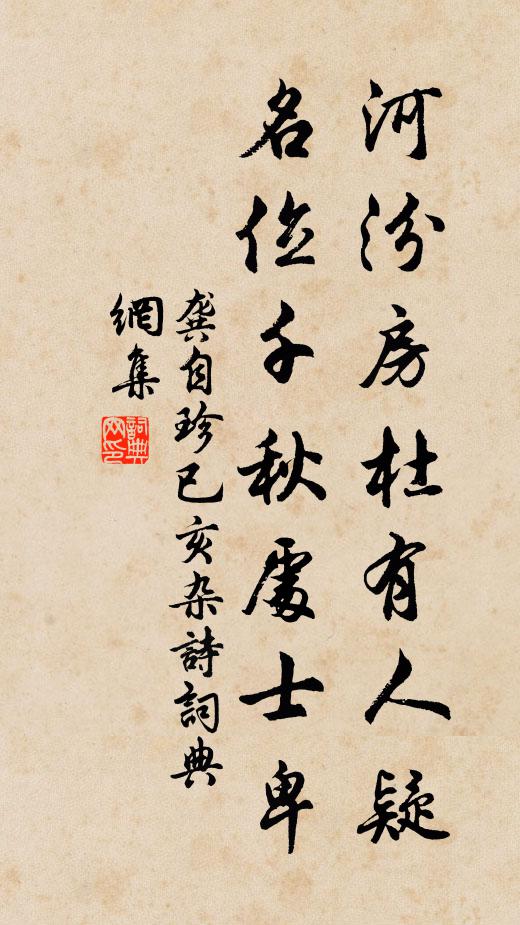 河汾房杜有人疑
名位千秋處士卑
龔自珍己亥杂詩詞典
網集
詞典网印